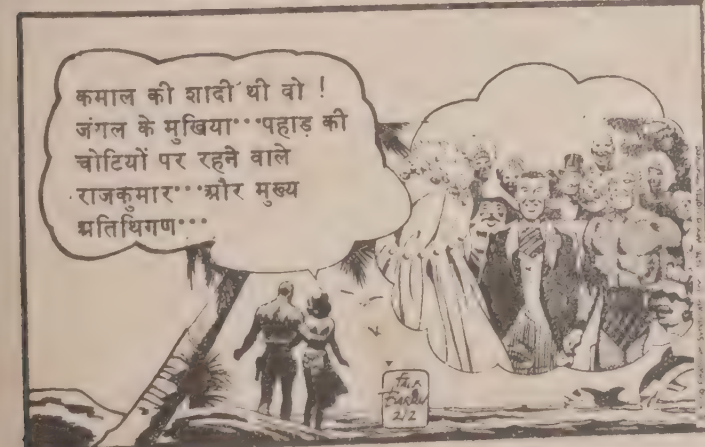 कमाल की शादी थी वो !
जंगल के मुखिया···पहाड़ की
चोटियों पर रहने वाले
राजकुमार···और मुख्य
अतिथिगण···
2/2